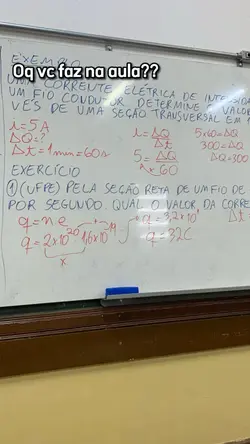 Oq vc faz na aula??
EXEMPLO
UMA CORRENTE ELÉTRICA DE
UM FIO CONDUTOR. DETERMINE O VALOR
VÉS DE UMA SEÇÃO TRANSVERSAL EM 1
i=5A
ΔQ=?
Δt=1min=60s
i=ΔQ
Δt
5=ΔQ
60
5x60=ΔQ
300=ΔQ
ΔQ=300
EXERCÍCIO
1) (UFPE) PELA SEÇÃO RETA DE UM FIO DE
POR SEGUNDO. QUAL O VALOR DA CORRE
q=n.e
q=2x10²⁰.1,6x10⁻¹⁹
x
q=3,2x10¹
q=32C
Δt